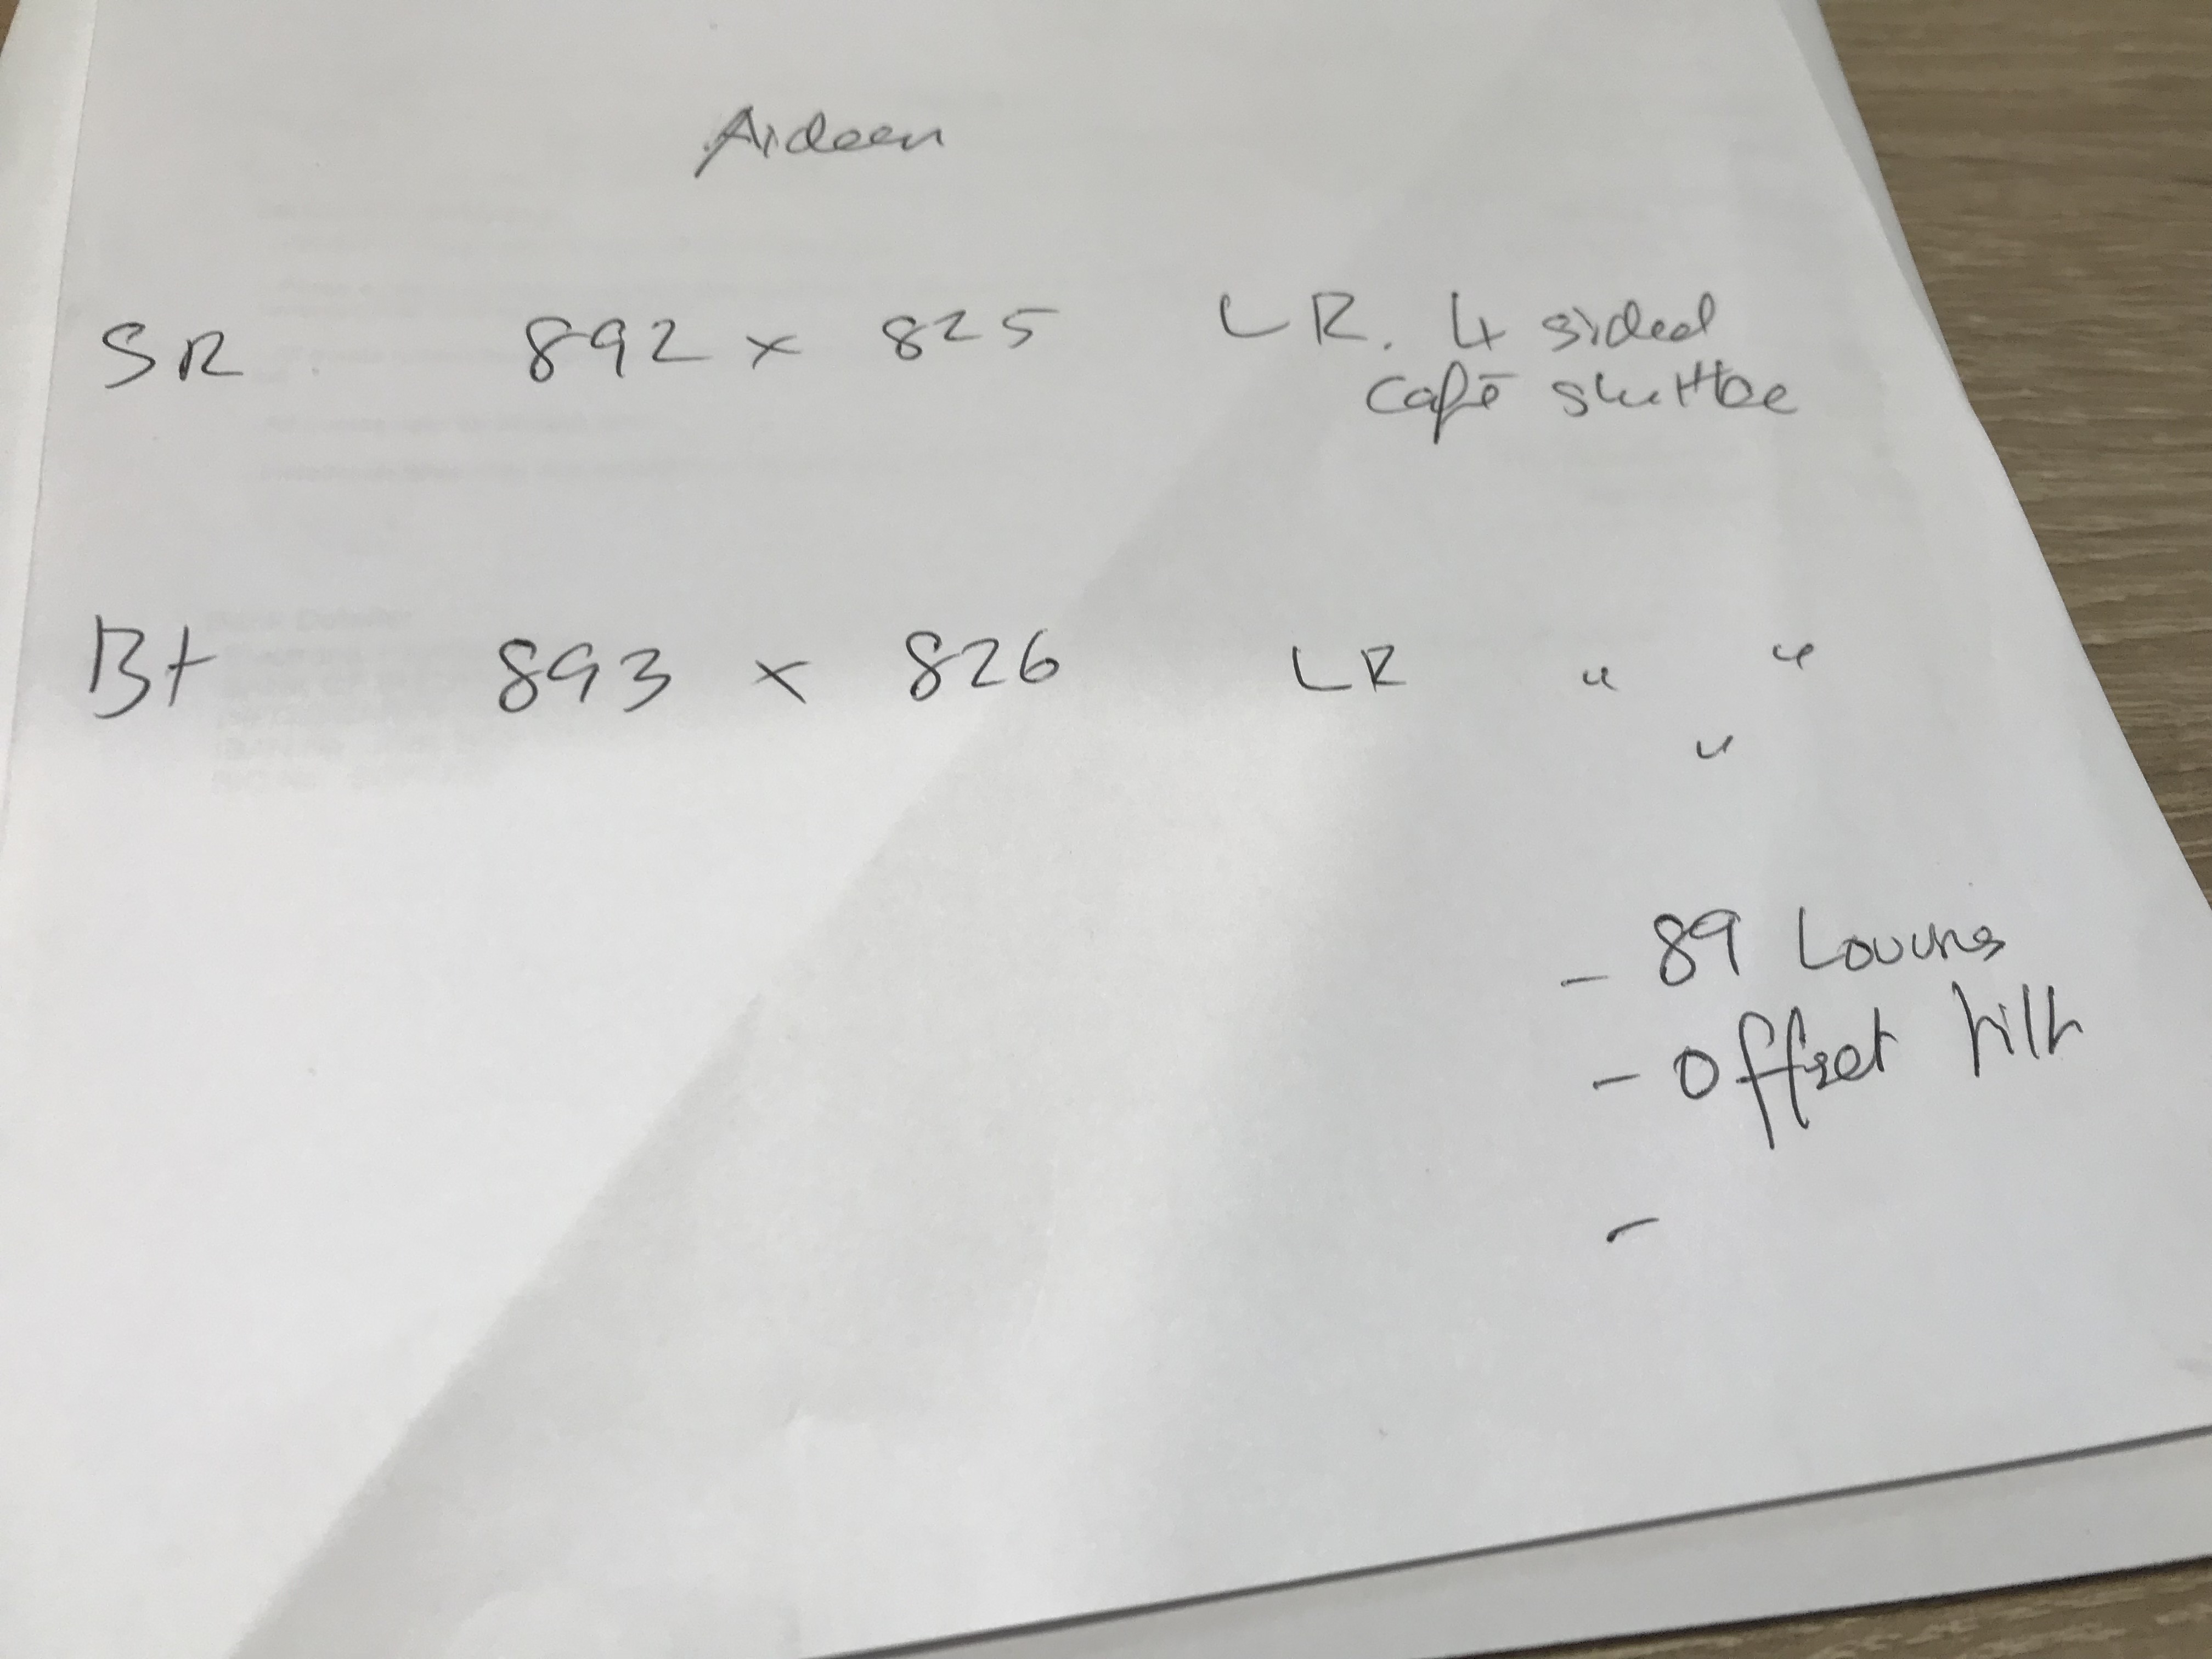 Aideen
SR 892 x 825 LR. 4 sided
Café shutter
Bt 893 x 826 LR " "
"
- 89 Louvres
- Offset tilt
-